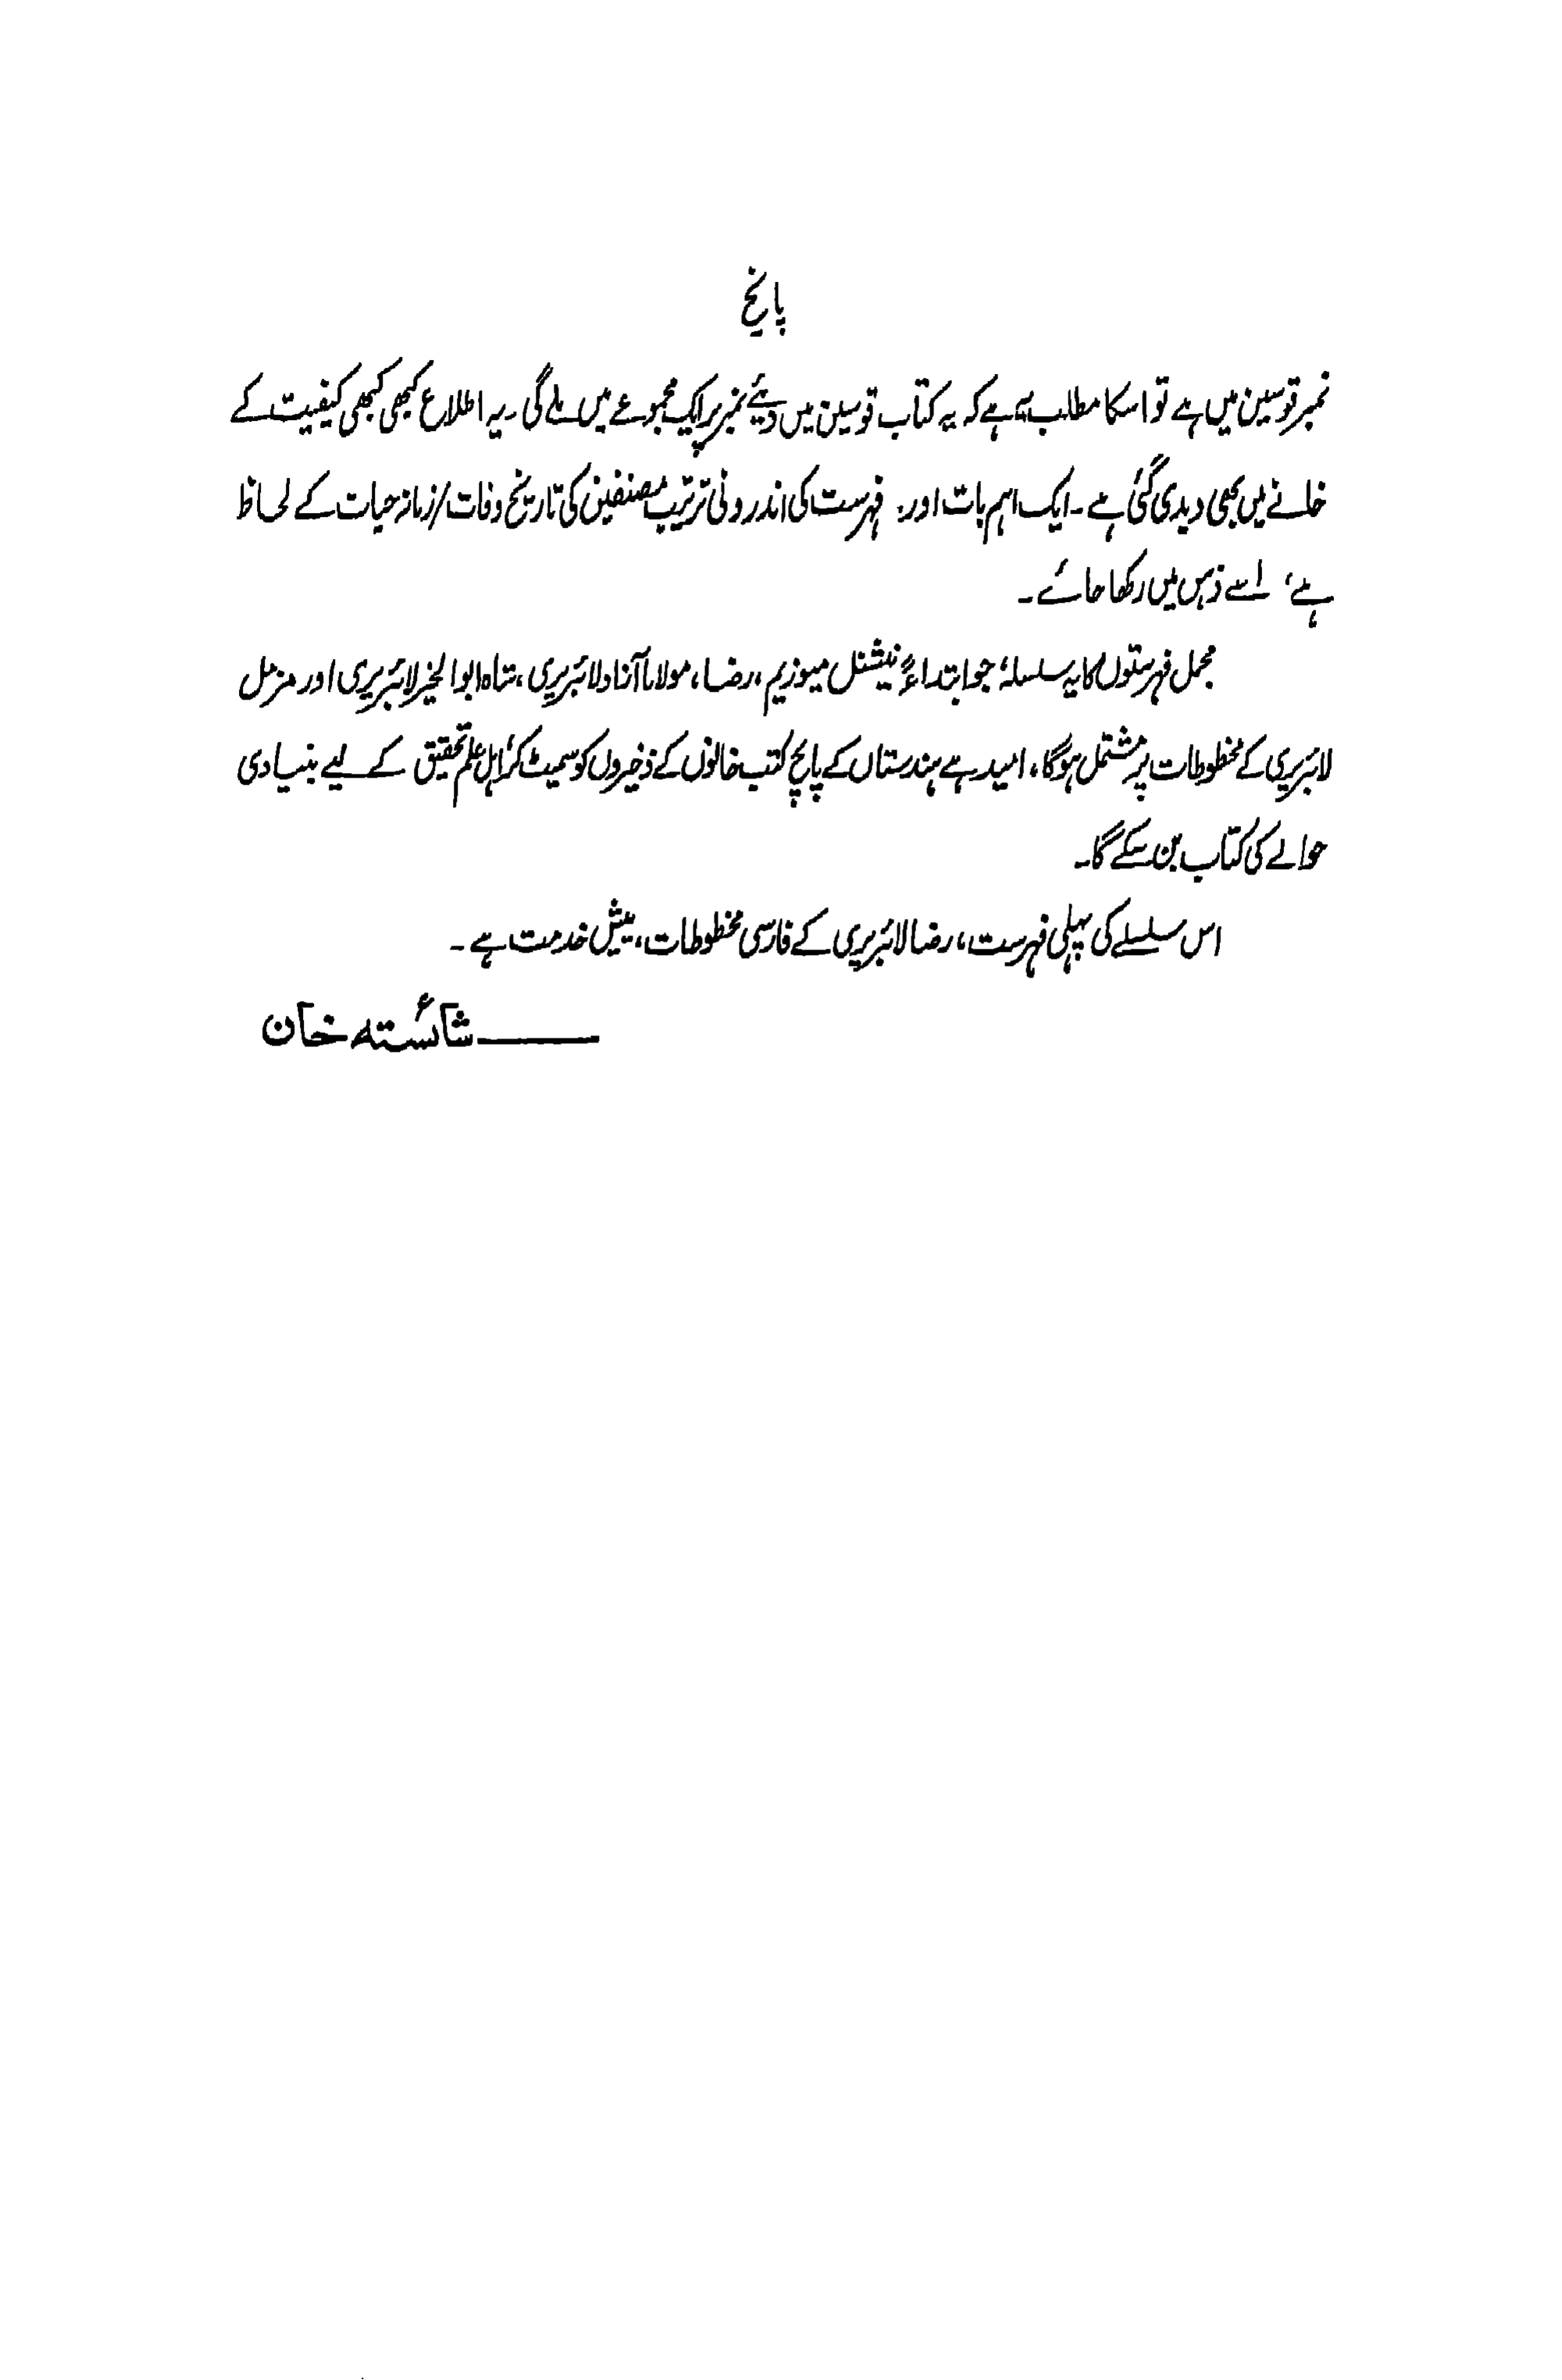 پانچ
نمبر قوسین میں ہے تو اسکا مطلب یہ ہے کہ یہ کتاب قوسین میں دیئے نمبر پر ایک مجموعے میں ملے گی ۔ یہ اطلاع کبھی کبھی کیفیت کے
خانے میں بھی دیدی گئی ہے ۔ ایک اہم بات اور، فہرست کی اندرونی ترتیب مصنفین کی تاریخ وفات/زمانہ حیات کے لحاظ
ہے، اسے ذہن میں رکھا جائے ۔
مجمل فہرستوں کا یہ سلسلہ، جو ابتداءً نیشنل میوزیم، رضا، مولانا آزاد لائبریری، شاہ ابوالخیر لائبریری اور مزمل
لائبریری کے مخطوطات پر مشتمل ہوگا، امید ہے ہندستاں کے پانچ کتب خانوں کے ذخیروں کو سمیٹ کر اہل علم تحقیق کے لیے بنیادی
حوالے کی کتاب بن سکے گا۔
اس سلسلے کی پہلی فہرست، رضا لائبریری کے فارسی مخطوطات، پیش خدمت ہے ۔
——— شائستہ خان